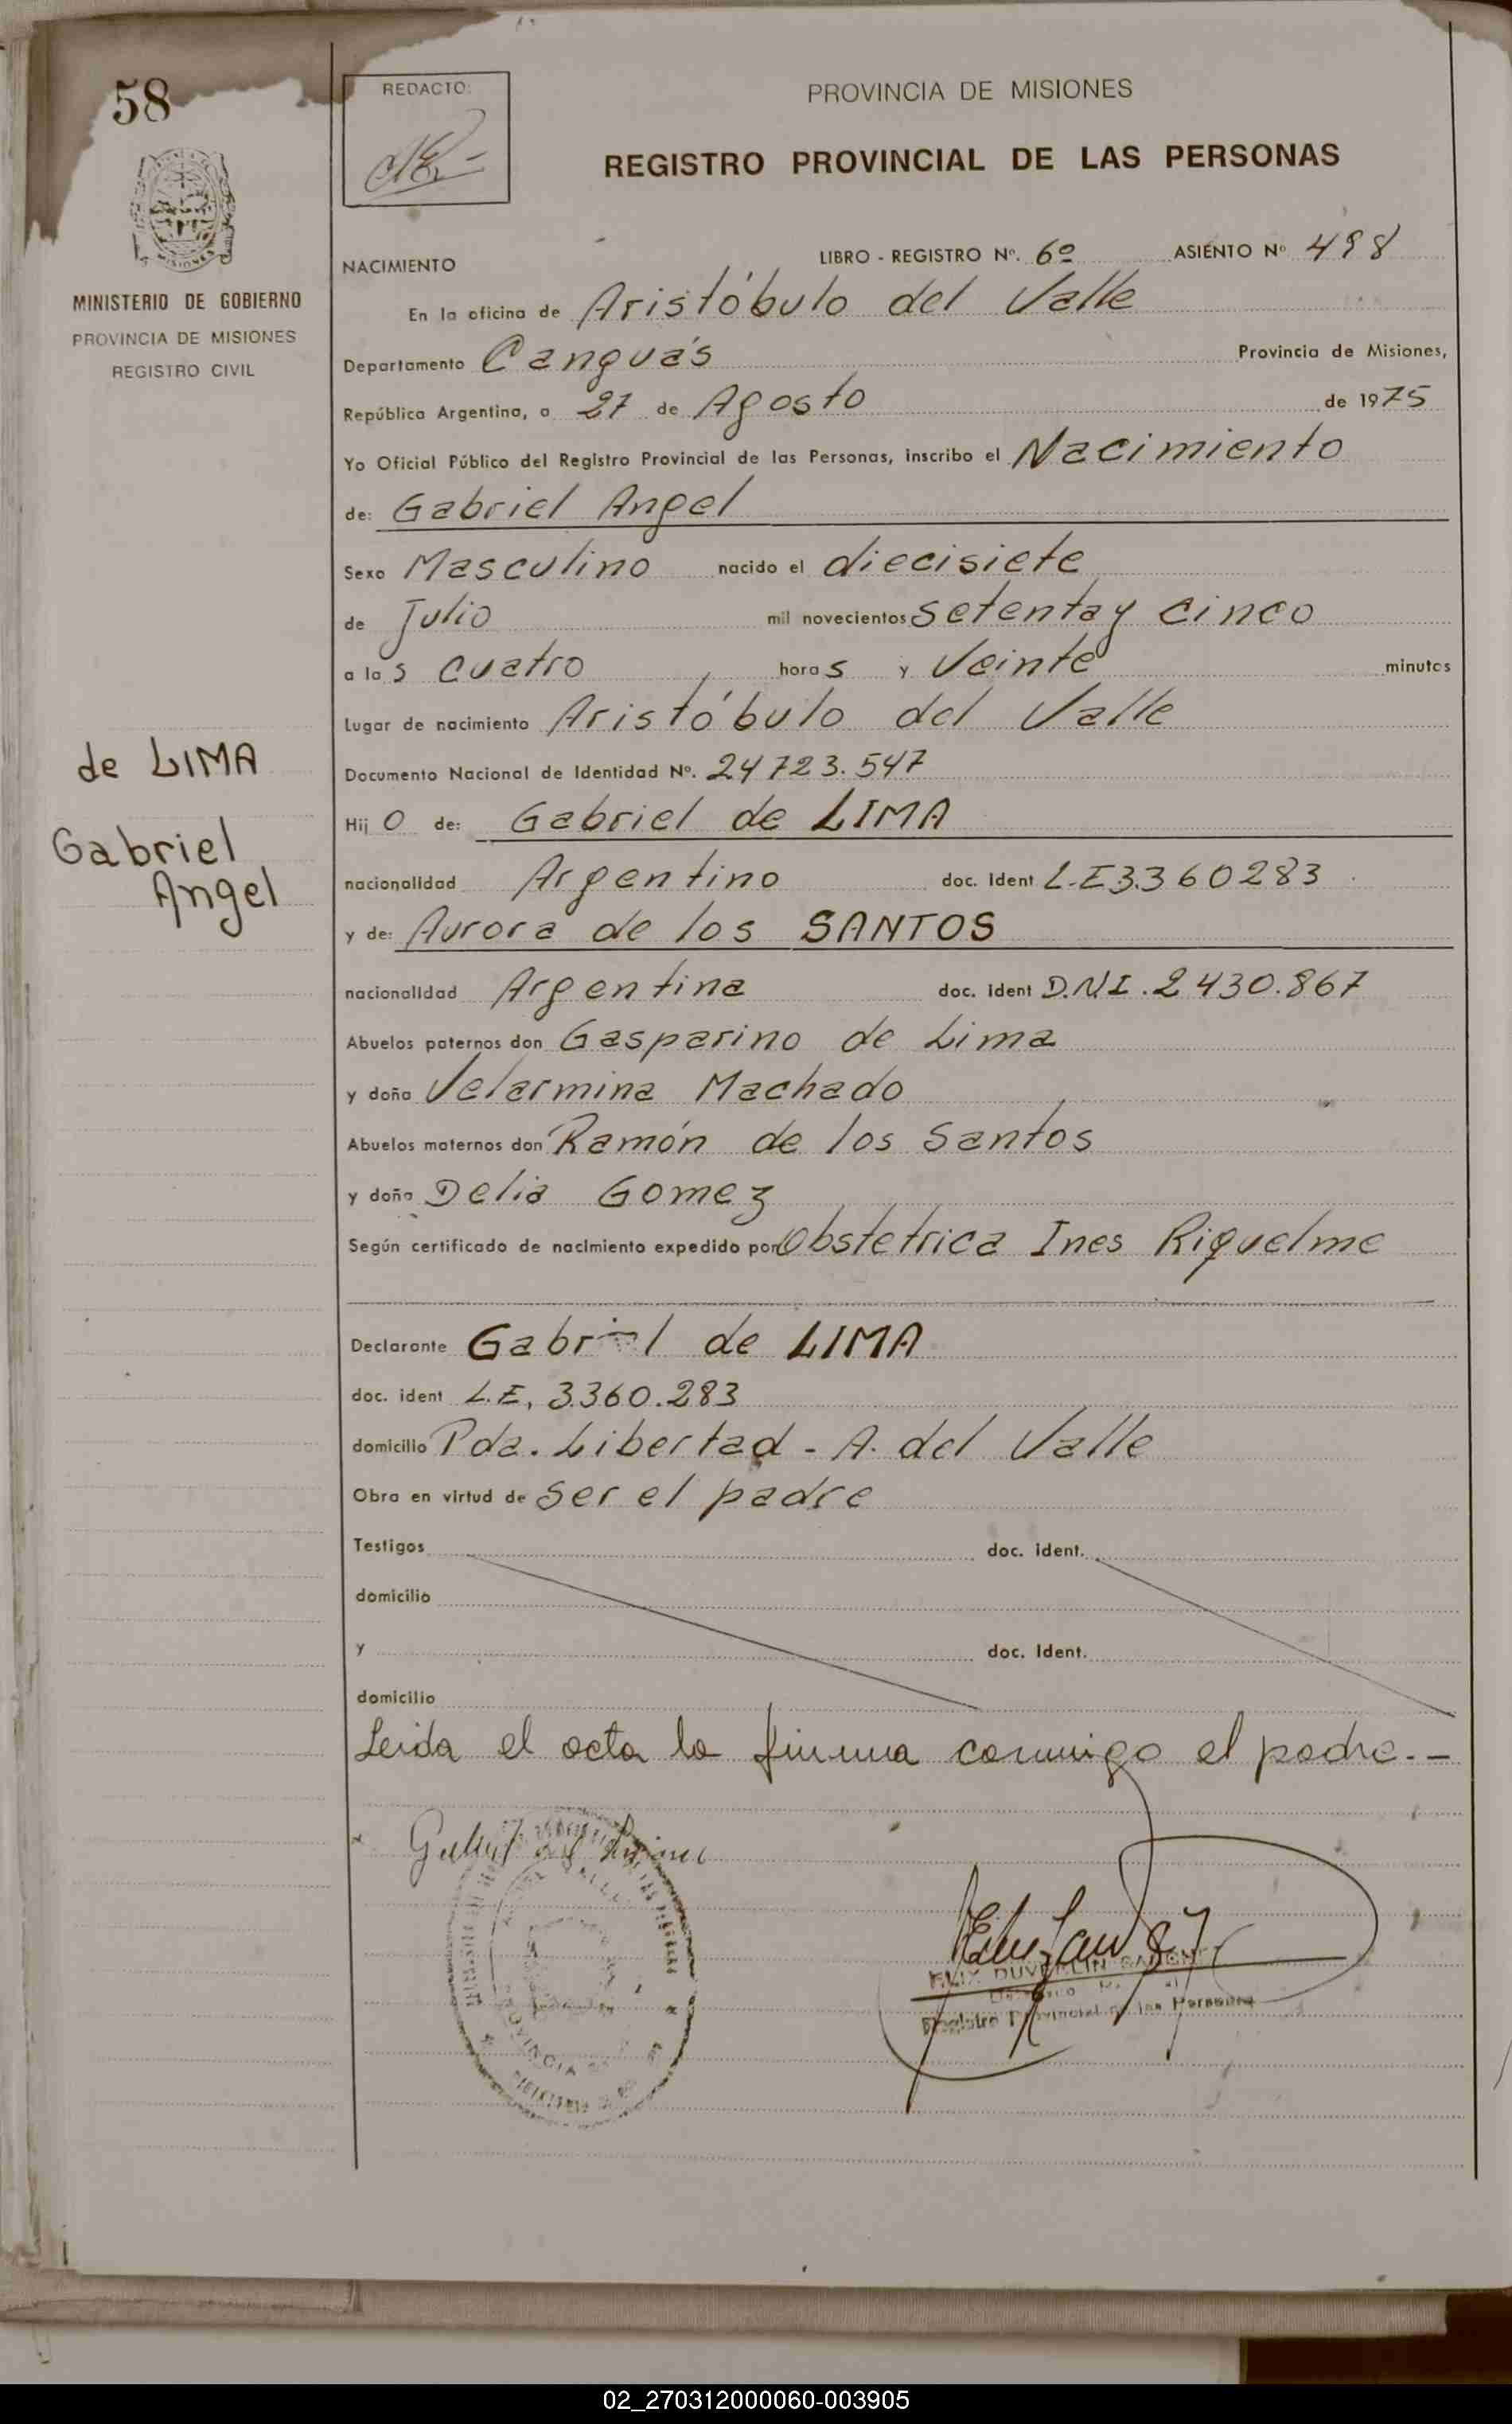 58
REDACTO:
PROVINCIA DE MISIONES
REGISTRO PROVINCIAL DE LAS PERSONAS
MISIONES
MINISTERIO DE GOBIERNO
PROVINCIA DE MISIONES
REGISTRO CIVIL
NACIMIENTO LIBRO - REGISTRO Nº. 6º ASIENTO Nº 498
En la oficina de Aristóbulo del Valle
Departamento Cainguás Provincia de Misiones,
República Argentina, a 27 de Agosto de 1975
Yo Oficial Público del Registro Provincial de las Personas, inscribo el Nacimiento
de: Gabriel Angel
Sexo Masculino nacido el diecisiete
de Julio mil novecientos setenta y cinco
a las cuatro horas y veinte minutos
Lugar de nacimiento Aristóbulo del Valle
de LIMA
Gabriel
Angel
Documento Nacional de Identidad Nº. 24723.547
Hijo de: Gabriel de LIMA
nacionalidad Argentino doc. Ident L.E 3.360283
y de: Aurora de los SANTOS
nacionalidad Argentina doc. ident D.N.I. 2430.867
Abuelos paternos don Gasparino de Lima
y doña Velarmina Machado
Abuelos maternos don Ramón de los Santos
y doña Delia Gomez
Según certificado de nacimiento expedido por Obstetrica Ines Riquelme
Declarante Gabriel de LIMA
doc. ident L.E. 3.360.283
domicilio Pda. Libertad - A. del Valle
Obra en virtud de ser el padre
Testigos doc. ident.
domicilio
y doc. Ident.
domicilio
Leida el acta la firma conmigo el padre.-
Gabriel de Lima
PROVINCIA
FELIX
Registro Provincial de las Personas
02_270312000060-003905